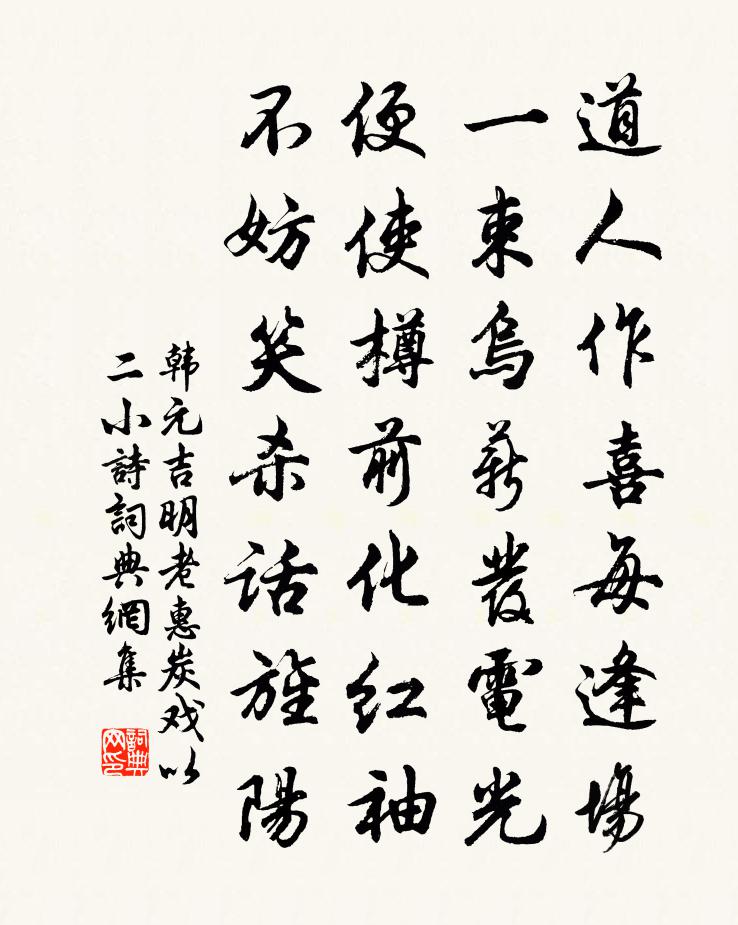 道人作喜每逢場
一束烏薪發電光
便使樽前化红袖
不妨笑杀话旌陽
韩元吉明老惠炭戏以
二小詩詞典網集
詞典
网印